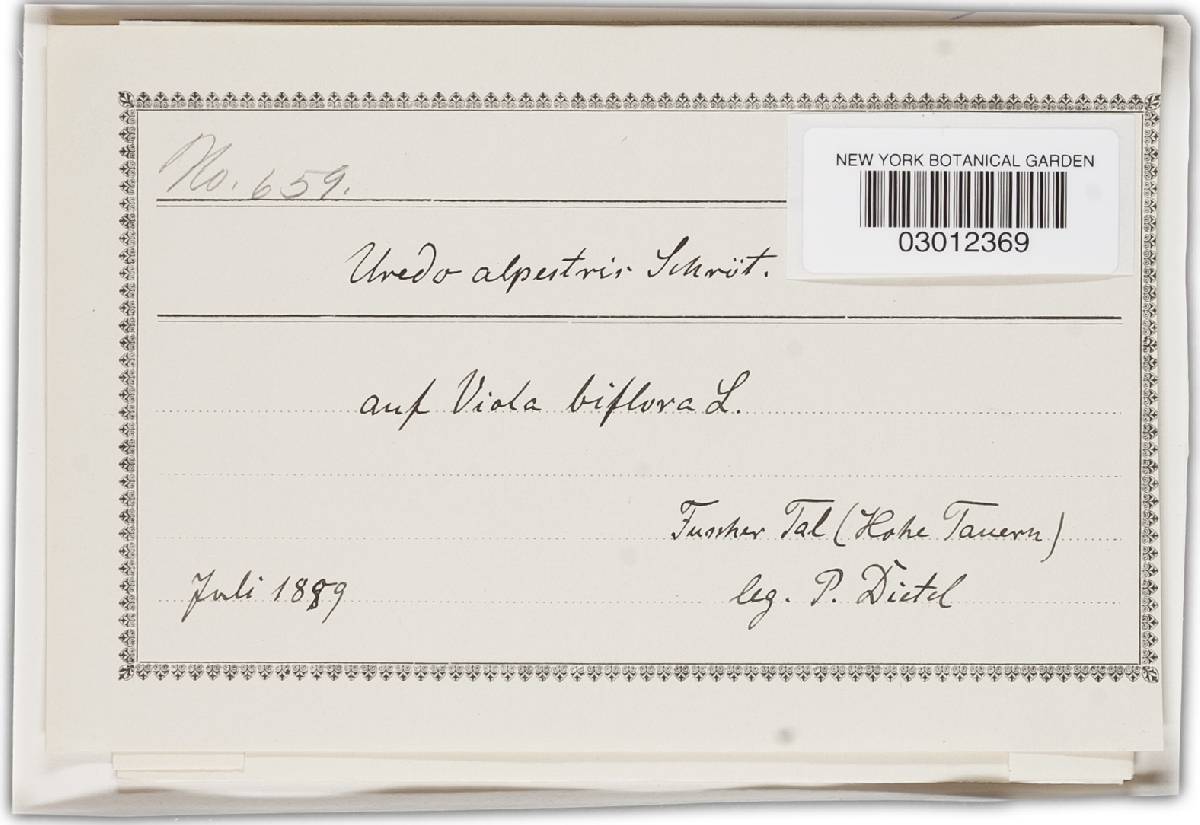 No. 659.
NEW YORK BOTANICAL GARDEN
03012369
Uredo alpestris Schröt.
auf Viola biflora L.
Fuscher Tal (Hohe Tauern)
Juli 1889
leg. P. Dietel